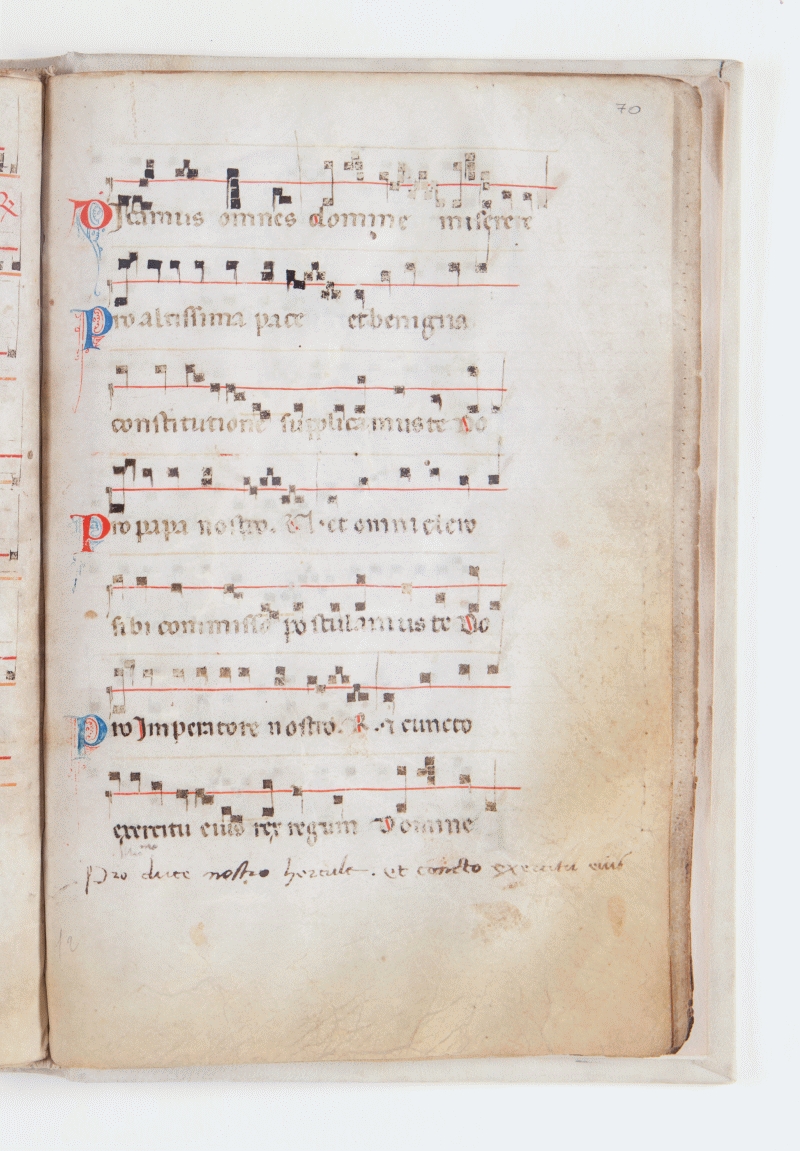 70
Dicamus omnes domine miserere
Pro altissima pace et benigna
constitutione supplicamus te Do
Pro papa nostro. et omni clero
sibi commisso postulamus te Do
Pro Imperatore nostro. R. et cuncto
exercitu eius rex regum Domine
Pro duce nostro hercule. et concto exercitu eius
12